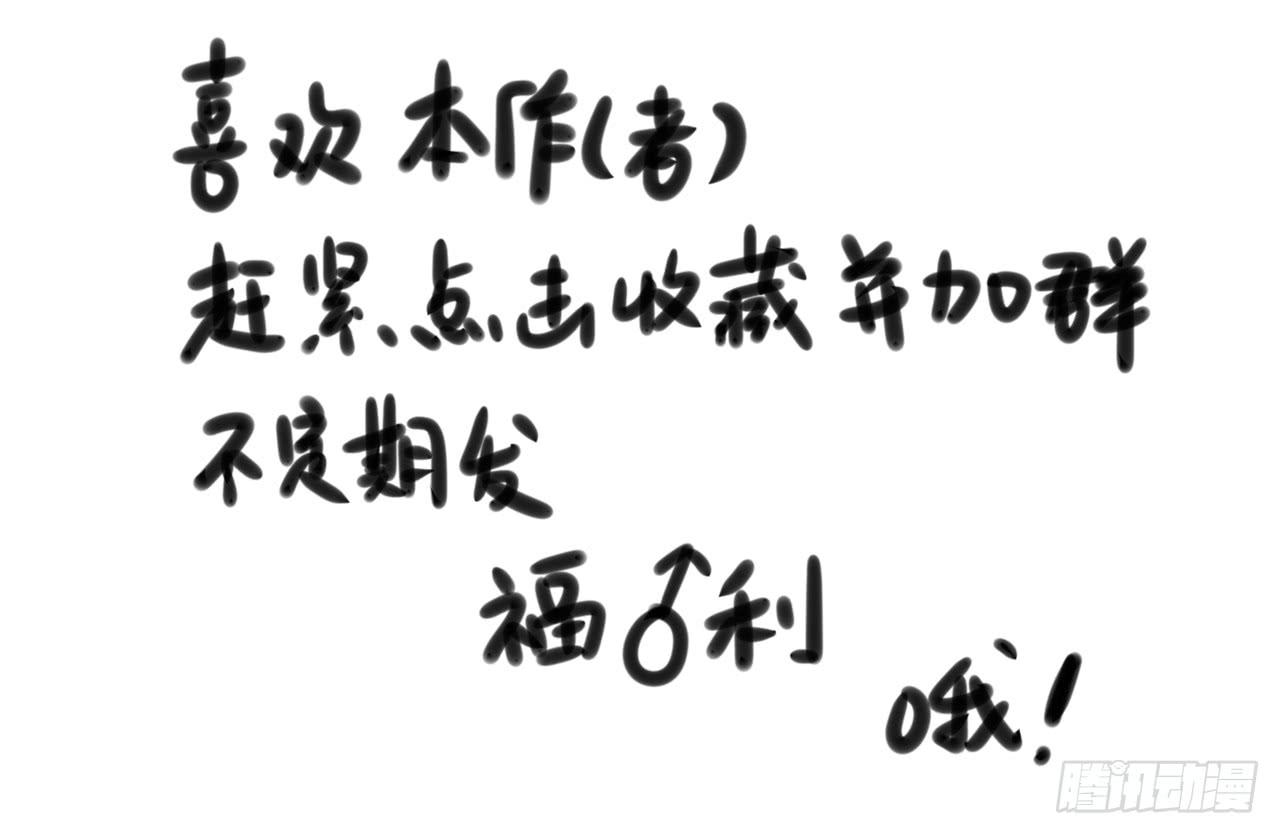 喜欢本作(者)
赶紧点击收藏并加群
不定期发
福♂利
哦!
腾讯动漫